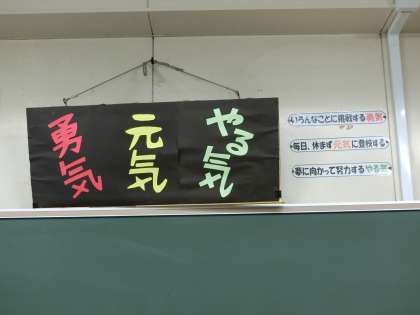 やる気
元気
勇気
いろんなことに挑戦する勇気
毎日、休まず元気に登校する
夢に向かって努力するやる気